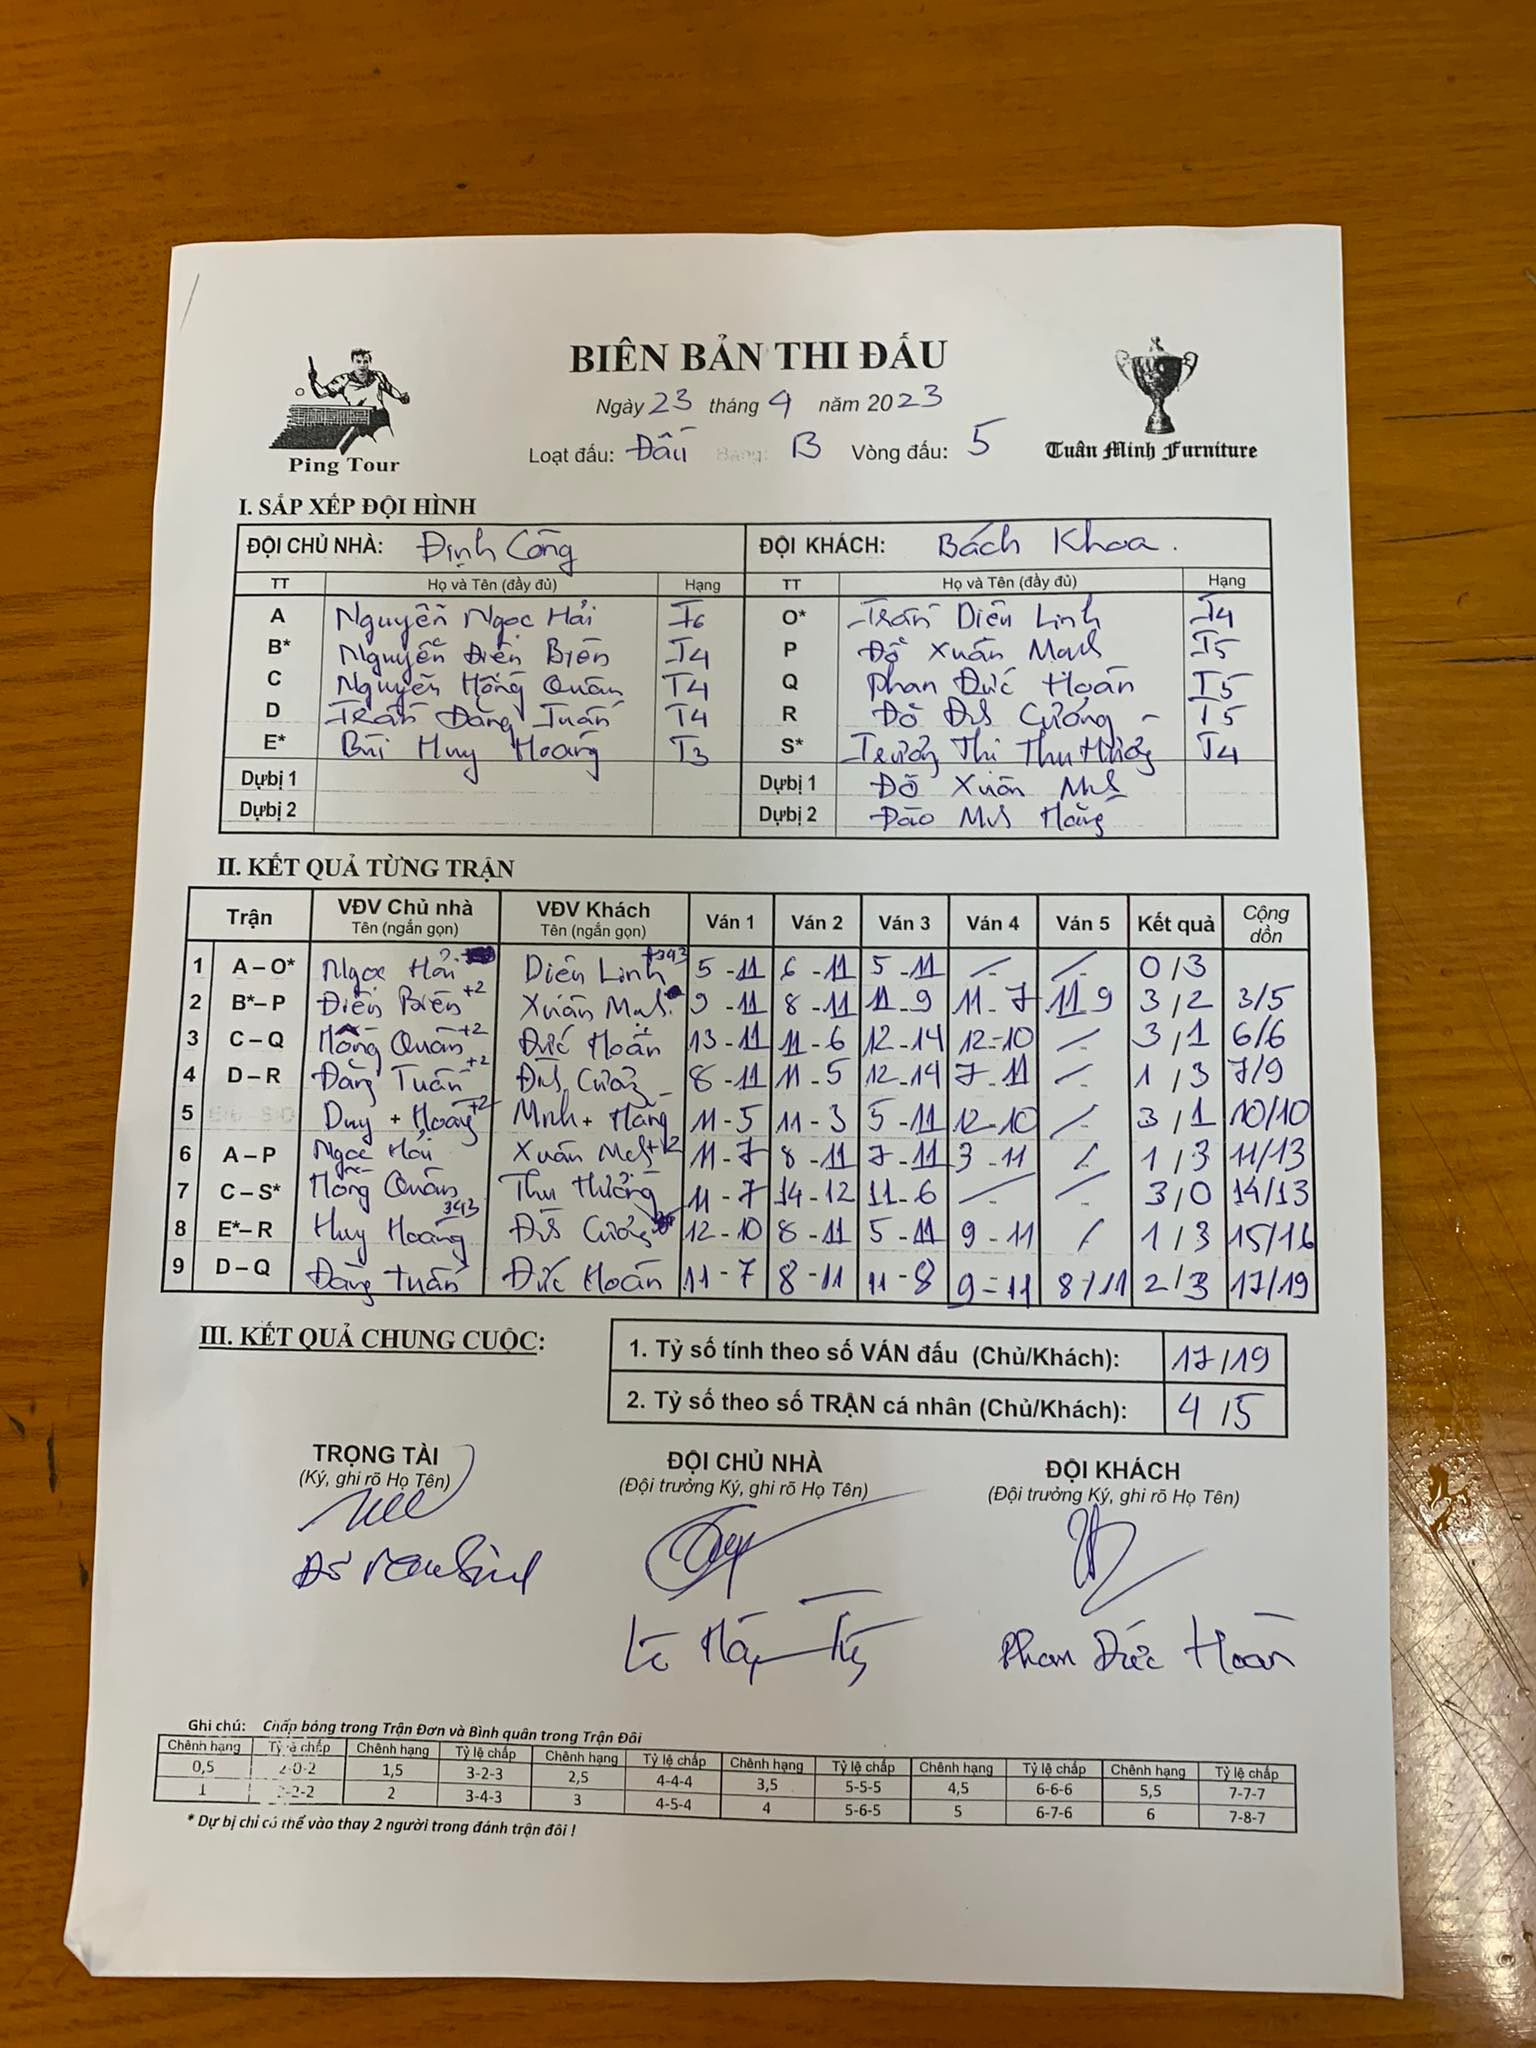 BIÊN BẢN THI ĐẤU
Ngày 23 tháng 4 năm 2023
Ping Tour
Loạt đấu: Đấu Bảng: B Vòng đấu: 5
Tuân Minh Furniture
I. SẮP XẾP ĐỘI HÌNH
ĐỘI CHỦ NHÀ: Định Công ĐỘI KHÁCH: Bách Khoa.
TT Họ và Tên (đầy đủ) Hạng TT Họ và Tên (đầy đủ) Hạng
A Nguyễn Ngọc Hải T6 O* Trần Diên Linh T4
B* Nguyễn Điền Biên T4 P Đỗ Xuân T5
C Nguyễn Hồng Quân T4 Q Phan Đức Hoàn T5
D Trần Đăng Tuấn T4 R Đỗ Cường T5
E* Bùi Huy Hoàng T3 S* Trương Thị Thu Hường T4
Dự bị 1 Dự bị 1 Đỗ Xuân
Dự bị 2 Dự bị 2 Đào Hằng
II. KẾT QUẢ TỪNG TRẬN
Trận VĐV Chủ nhà VĐV Khách Ván 1 Ván 2 Ván 3 Ván 4 Ván 5 Kết quả Cộng dồn
Tên (ngắn gọn) Tên (ngắn gọn)
1 A – O* Ngọc Hải Diên Linh +343 5 - 11 6 - 11 5 - 11 - - 0 / 3
2 B* – P Điền Biên +2 Xuân 9 - 11 8 - 11 11 - 9 11 - 7 11 9 3 / 2 3/5
3 C – Q Hồng Quân +2 Đức Hoàn 13 - 11 11 - 6 12 - 14 12 - 10 - 3 / 1 6/6
4 D – R Đăng Tuấn +2 Cường 8 - 11 11 - 5 12 - 14 7 - 11 - 1 / 3 7/9
5 Duy + Hoàng +2 Minh + Hằng 11 - 5 11 - 3 5 - 11 12 - 10 - 3 / 1 10/10
6 A – P Ngọc Hải Xuân +2 11 - 7 8 - 11 7 - 11 3 - 11 / 1 / 3 11/13
7 C – S* Hồng Quân Thu Hường 11 - 7 14 - 12 11 - 6 - - 3 / 0 14/13
8 E* – R Huy Hoàng 343 Cường 12 - 10 8 - 11 5 - 11 9 - 11 / 1 / 3 15/16
9 D – Q Đăng Tuấn Đức Hoàn 11 - 7 8 - 11 11 - 8 9 - 11 8 / 11 2 / 3 17/19
III. KẾT QUẢ CHUNG CUỘC:
1. Tỷ số tính theo số VÁN đấu (Chủ/Khách): 17/19
2. Tỷ số theo số TRẬN cá nhân (Chủ/Khách): 4/5
TRỌNG TÀI ĐỘI CHỦ NHÀ ĐỘI KHÁCH
(Ký, ghi rõ Họ Tên) (Đội trưởng Ký, ghi rõ Họ Tên) (Đội trưởng Ký, ghi rõ Họ Tên)
Phan Đức Hoàn
Ghi chú: Chấp bóng trong Trận Đơn và Bình quân trong Trận Đôi
Chênh hạng Tỷ lệ chấp Chênh hạng Tỷ lệ chấp Chênh hạng Tỷ lệ chấp Chênh hạng Tỷ lệ chấp Chênh hạng Tỷ lệ chấp Chênh hạng Tỷ lệ chấp
0,5 2-0-2 1,5 3-2-3 2,5 4-4-4 3,5 5-5-5 4,5 6-6-6 5,5 7-7-7
1 2-2-2 2 3-4-3 3 4-5-4 4 5-6-5 5 6-7-6 6 7-8-7
* Dự bị chỉ có thể vào thay 2 người trong đánh trận đôi !